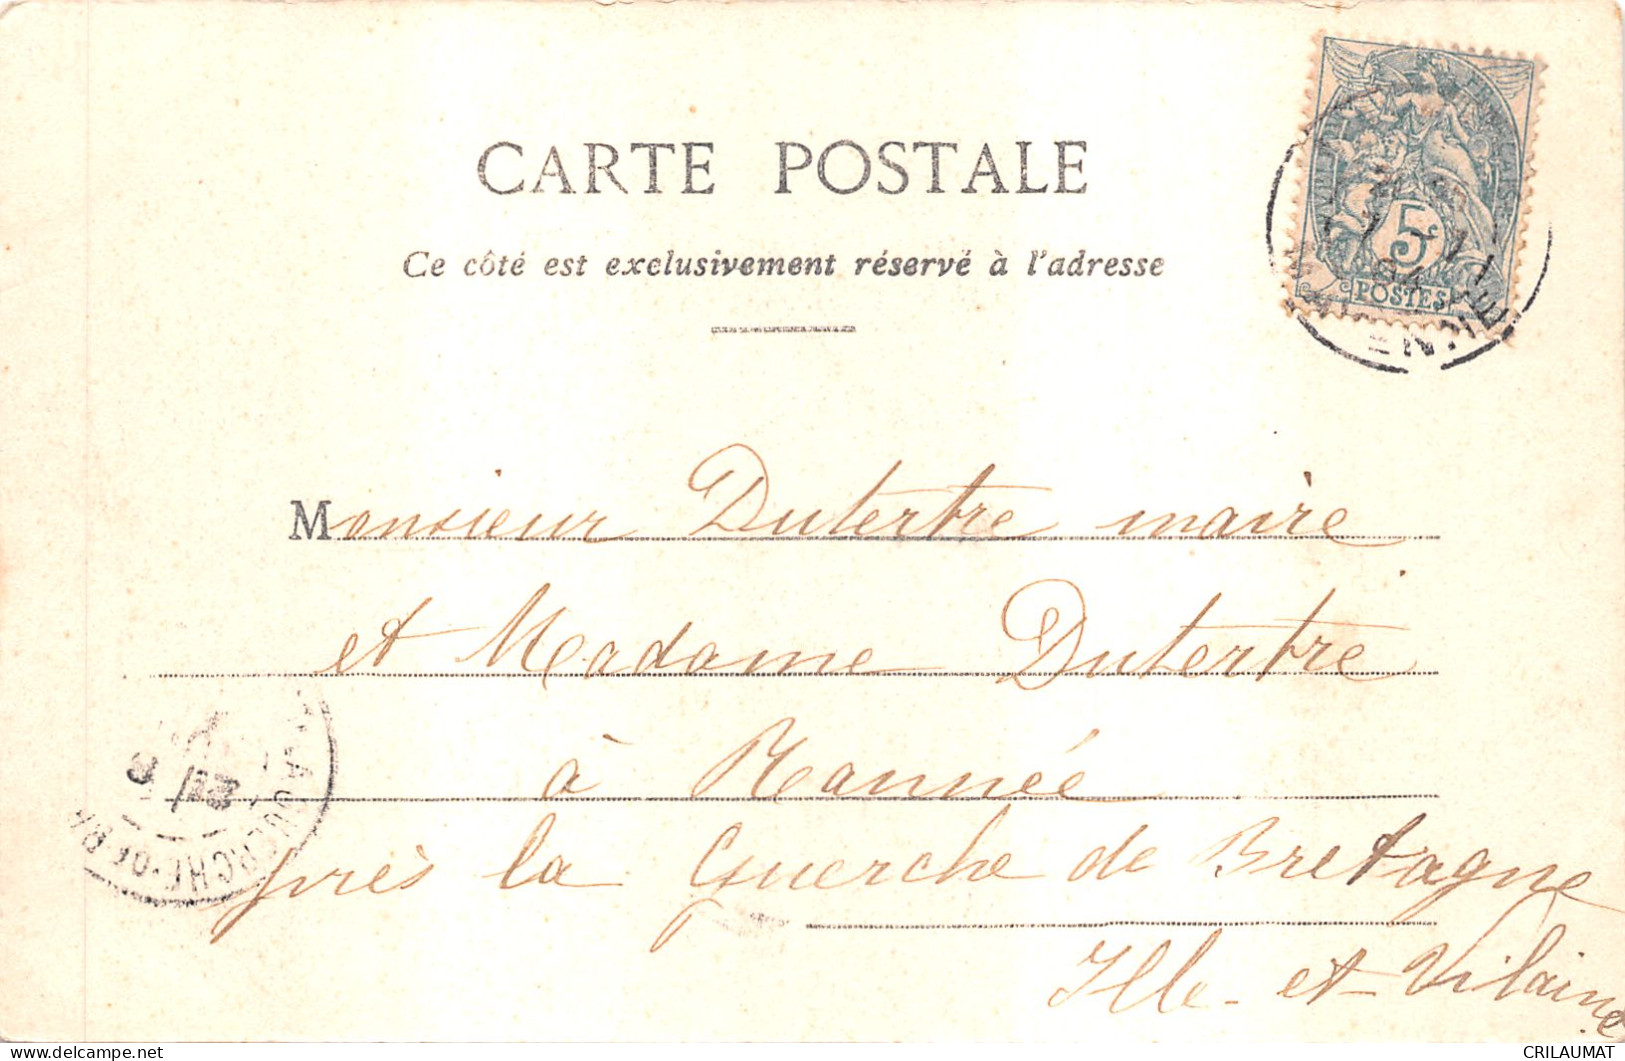 CARTE POSTALE
Ce côté est exclusivement réservé à l'adresse
5c
POSTES
Monsieur Dutertre maire
et Madame Dutertre
à Rannée
près la Guerche de Bretagne
Ille-et-Vilaine
LA GUERCHE-DE-B
CRILAUMAT